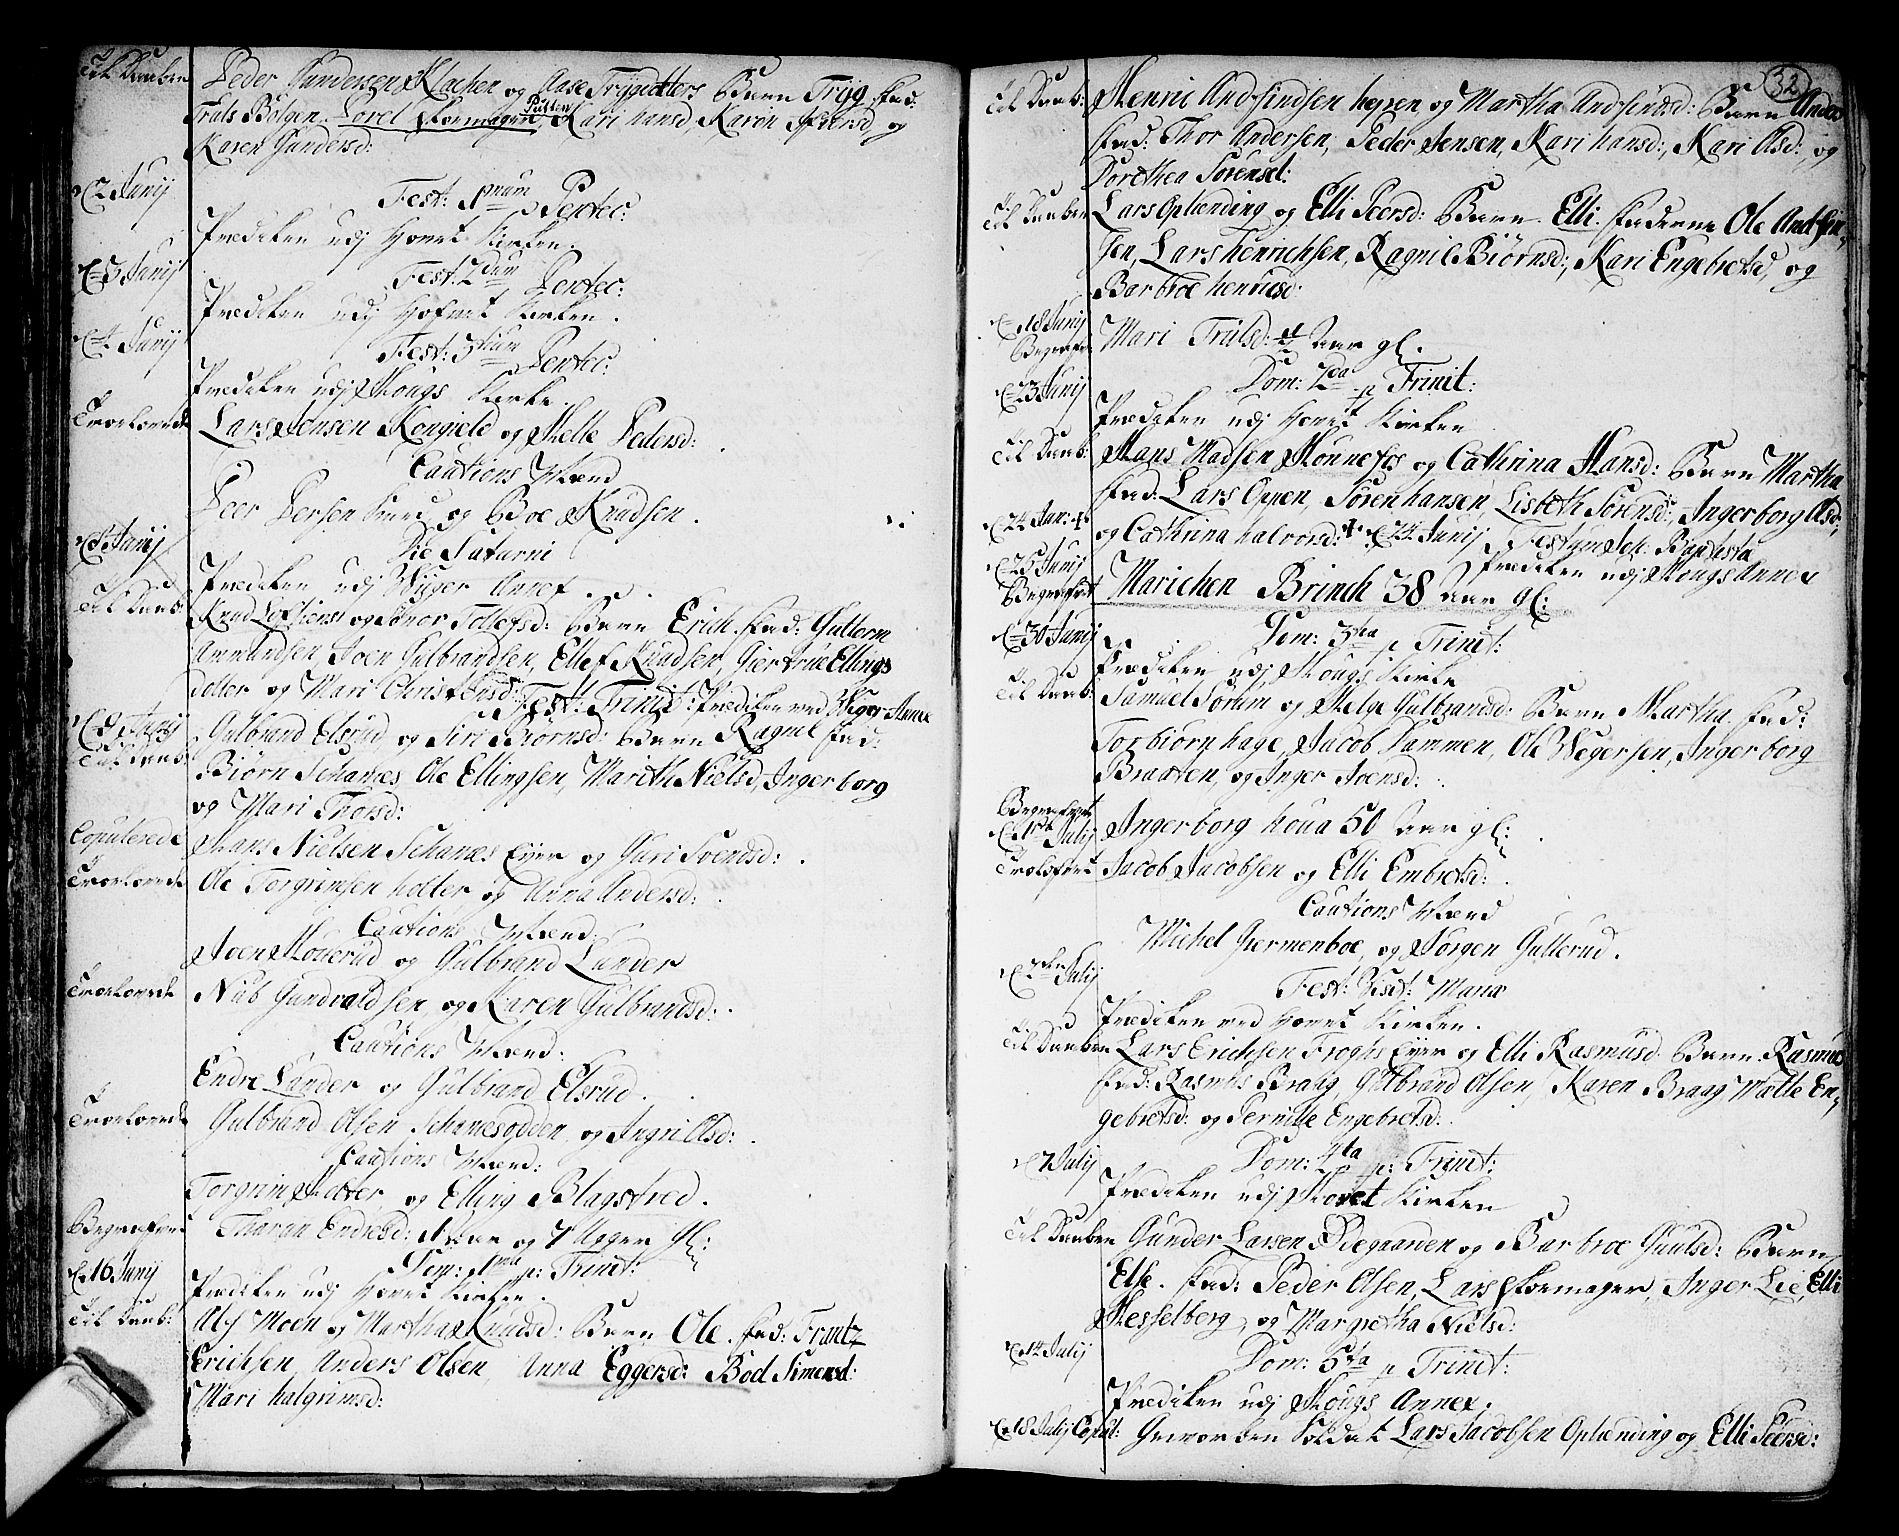 Til Daaben Peder Gundersen Klachen og Aase Trygsdotters Barn Tryg. fad:
Truls Bølgen. Lovel Skomager Putten, Kari hansd, Karen Iversd, og
Karen Gundersd:
2 Junij Fest: 1mum Pentec:
Prædiken udj Hovet Kirken.
3 Junij Fest: 2dum Pentec:
Prædiken udj Hofvet Kirken.
4 Junij Fest: 3tium Pentec:
Prædiken udj Skougs Kirke.
Troelovede Lars Jensen Kongield og Helle Pedersd:
Cautions Mænd
Peer Persen og Boe Knudsen.
8 Junij Die Saturni
Prædiken udj Wiger Annex.
Til Daab: Knud Loftsens og Gunor Tollefsd: Barn Erich. fad: Gulterm
Ammundsen, Joen Gulbrandsen, Ellef Knudsen, Giertrue Ellings
dotter og Mari Christensd: Fest: Trinit: Prædiken ved Wiger Annex
9 Junij Gulbrand Elsrud og Siri Biørnsd: Barn Ragnil fad:
Til Daab: Biørn Schanæs, Ole Ellingsen, Marith Nielsd, Ingerborg
og Mari Thorsd:
Copulerede Hans Nielsen Schanæs Eyer og Guri Svendsd:
Troelovede Ole Torgrimsen holter og Anna Andersd:
Cautions Mænd:
Joen Houerud og Gulbrand Lunder
Troelovede Niub Gundvaldsen, og Karen Gulbrandsd:
Cautions Mænd:
Endre Lunder og Gulbrand Elsrud.
Troelovede Gulbrand Olsen Schanæsodden, og Ingri Olsd:
Cautions Mænd:
Torgrim Holter og Elling Blagstved.
Begravefvet Tharan Endresd: 1 Aar og 7 Uger gl:
16 Junij Dom: 1ma p: Trinit:
Prædiken udj Hovet Kirken.
Til Daab: Alf Moen og Martha Knudsd: Barn Ole. fad: Frantz
Erichsen, Anders Olsen, Anna Eggersd: Bod Simensd:
Mari halgrimsd:
32
Til Daab: Henric Andfindsen heyen, og Martha Andfindsd: Barn Anders
fad: Thor Andersen, Peder Jensen, Mari hansd:, Mari Olsd:, og
Dorethea Sørensd:
Til Daaben Lars Oplænding og Elli Peersd: Barn Elli. fadderne Ole Andfin-
sen, Lars henrichsen, Ragnil Biørnsd:, Kari Engebretsd, og
Barbroe henricsd:
18 Junij Begraven Mari Trulsd: Aar gl.
23 Junij Dom: 2da p Trinit:
Prædiken udj Hovet Kirken
Til Daab: Hans Madsen Hønnefos og Cathrina Hansd: Barn Martha
fad: Lars Oppen, Søren hansen, Lisbeth Sørensd:, Ingerborg Olsd,
24 Jun: og Cathrina halvorsd: 24 Junij Festum Joh: Baptista
Prædiken udj Skougs Annex
25 Junij Begravefvet Marichen Brinch 38 Aar gl:
30 Junij Dom: 3tia p Trinit:
Prædiken udj Skougs Kirke
Til Daab: Samuel Sørum og Helge Gulbrandsd: Barn Martha. fad:
Torbiørn hage, Jacob Dammen, Ole Wegersen, Ingerborg
Braaten, og Inger Joensd:
Begravefvet 1te Julij Ingerborg houa 50 Aar gl:
Troelofvet Jacob Jacobsen og Elli Embretsd:
Cautions Mænd
Michel Giermenboe, og Jørgen Gullerud.
2den Julij Fest: Visit: Mariæ
Prædiken ved Hovet Kirken.
Til Daaben Lars Erichsen Froghs Eyer og Elli Rasmusd: Barn Rasmus
fad: Rasmus Braag, Gulbrand Olsen, Karen Braag, Malle En-
gebretsd: og Pernille Engebretsd:
7 Julij Dom: 4ta p: Trinit:
Prædiken udj Hovet Kirken
Til Daaben Gunder Larsen Ødegaarden og Barbroe Guulsd: Barn
Else. fad: Peder Olsen, Lars Skomager, Inger Lie, Elli
Hesselberg, og Margretha Nielsd:
14 Julij Dom: 5ta p Trinit:
Prædiken udj Skougs Annex.
18 Julij Copul: Gevorben Soldat Lars Jacobsen Oplænding og Elli Peersd: